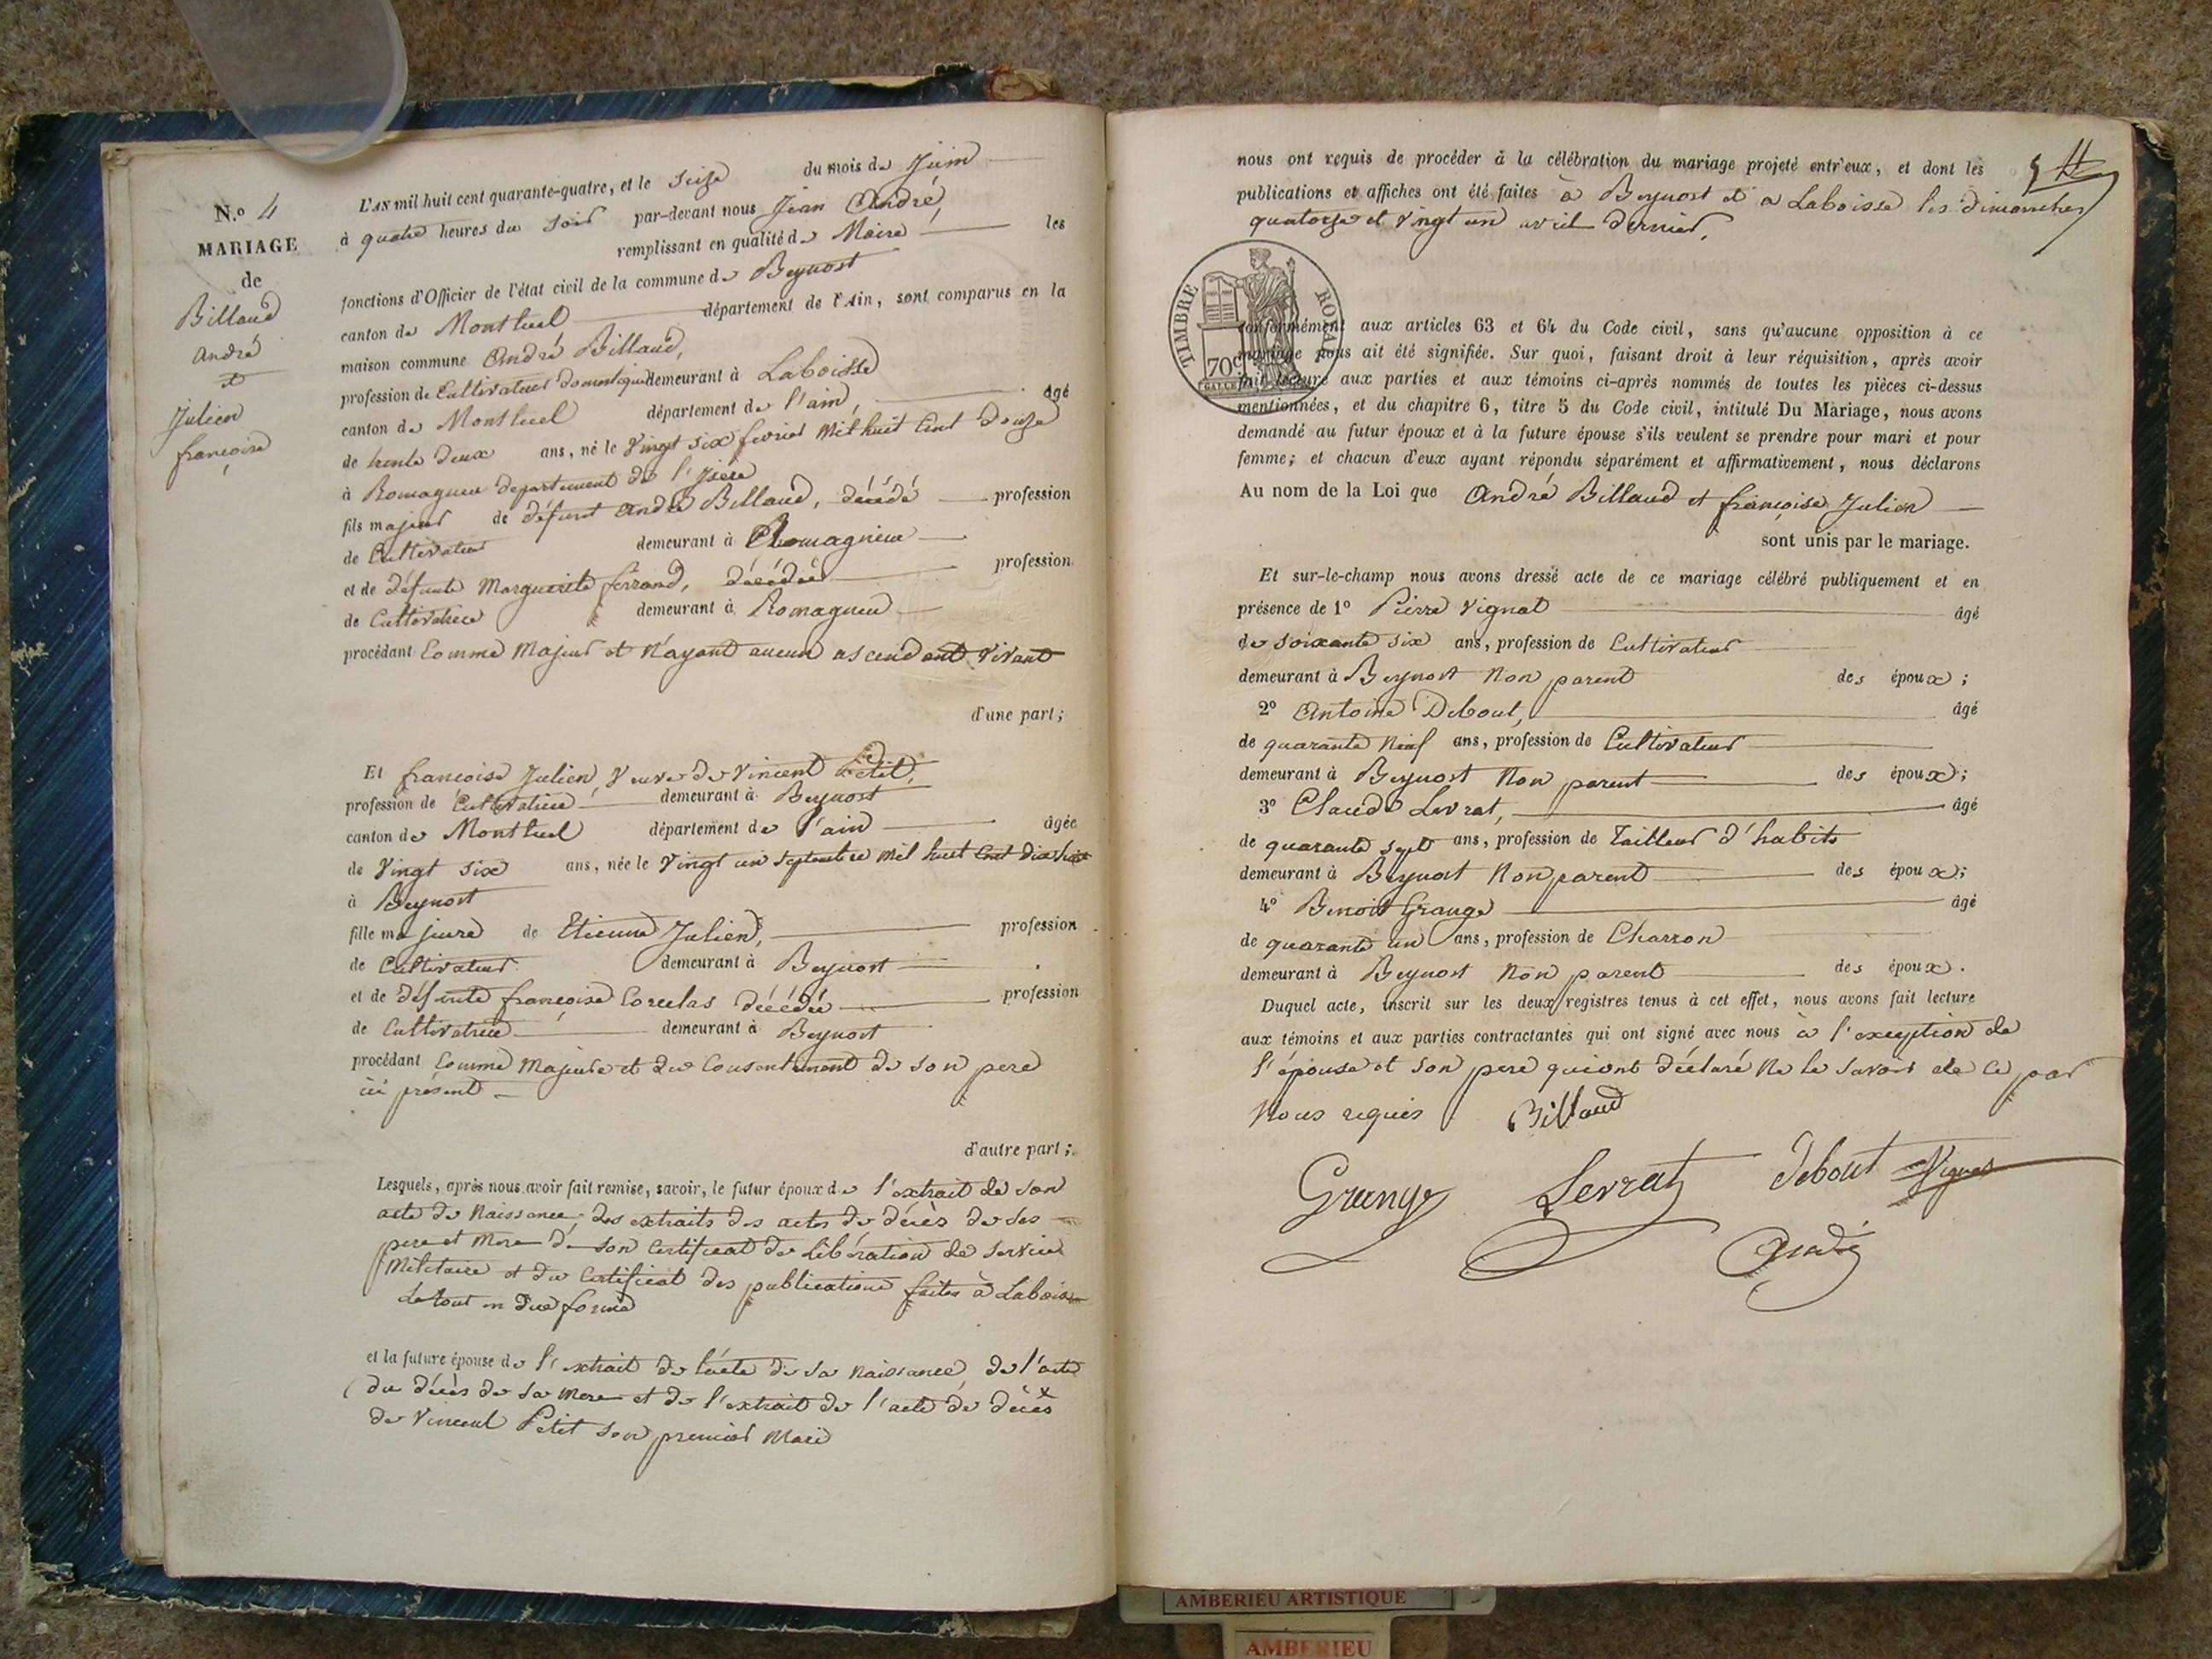 N.o 4
MARIAGE
de
Billaud
André
et
Julien
françoise
L'AN mil huit cent quarante-quatre, et le seize du mois de Juin
à quatre heures du soir par-devant nous Jean André,
remplissant en qualité de Maire les
fonctions d'Officier de l'état civil de la commune de Beynost
canton de Montluel département de l'Ain, sont comparus en la
maison commune André Billaud,
profession de Cultivateur domestique demeurant à Laboisse
canton de Montluel département de l'ain, âgé
de trente deux ans, né le vingt six fevrier mil huit Cent douze
à Romagneu departement de l'Isére
fils majeur de défunt André Billaud, décédé profession
de Cultivateur demeurant à Romagnieu
et de défunte Marguerite ferrand, décédée profession
de Cultivatrice demeurant à Romagneu
procédant Comme Majeur et N'ayant aucun ascendant vivant
d'une part;
Et françoise Julien, Veuve de Vincent Petit,
profession de Cultivatrice demeurant à Beynost
canton de Montluel département de l'ain âgée
de Vingt six ans, née le Vingt un septembre mil huit Cent dix huit
à Beynost
fille majeure de Etienne Julien, profession
de Cultivateur demeurant à Beynost
et de défunte françoise décédée profession
de Cultivatrice demeurant à Beynost
procédant Comme Majeure et du Consentement de son pere
ici présent
d'autre part;
Lesquels, après nous avoir fait remise, savoir, le futur époux de l'extrait de son
acte de Naissance, des extraits des actes de décès de ses
pere et Mere de son Certificat de libération de service
Militaire et du Certificat des publications faites à Laboisse
Le tout en due forme
et la future épouse de l'extrait de l'acte de sa Naissance, de l'acte
du décès de sa Mere et de l'extrait de l'acte de décès
de Vincent Petit son premier Mari
nous ont requis de procéder à la célébration du mariage projeté entr'eux, et dont les
publications et affiches ont été faites à Beynost et a Laboisse les dimanches
quatorze et Vingt un avril dernier,
TIMBRE ROYAL
70c
conformément aux articles 63 et 64 du Code civil, sans qu'aucune opposition à ce
mariage nous ait été signifiée. Sur quoi, faisant droit à leur réquisition, après avoir
fait lecture aux parties et aux témoins ci-après nommés de toutes les pièces ci-dessus
mentionnées, et du chapitre 6, titre 5 du Code civil, intitulé Du Mariage, nous avons
demandé au futur époux et à la future épouse s'ils veulent se prendre pour mari et pour
femme; et chacun d'eux ayant répondu séparément et affirmativement, nous déclarons
Au nom de la Loi que André Billaud et françoise Julien
sont unis par le mariage.
Et sur-le-champ nous avons dressé acte de ce mariage célébré publiquement et en
présence de 1o Pierre Vignat âgé
de soixante six ans, profession de Cultivateur
demeurant à Beynost Non parent des époux;
2o Antoine Debout, âgé
de quarante Neuf ans, profession de Cultivateur
demeurant à Beynost Non parent des époux;
3o Claude Levrat, âgé
de quarante sept ans, profession de Tailleur d'habits
demeurant à Beynost Non parent des époux;
4o Benoit Grange âgé
de quarante un ans, profession de Charron
demeurant à Beynost Non parent des époux.
Duquel acte, inscrit sur les deux registres tenus à cet effet, nous avons fait lecture
aux témoins et aux parties contractantes qui ont signé avec nous à l'exception de
l'épouse et son pere qui ont déclaré Ne le savoir de ce par
Nous requis Billaud
Grange Levrat Debout Vignat
André
AMBERIEU ARTISTIQUE
AMBERIEU